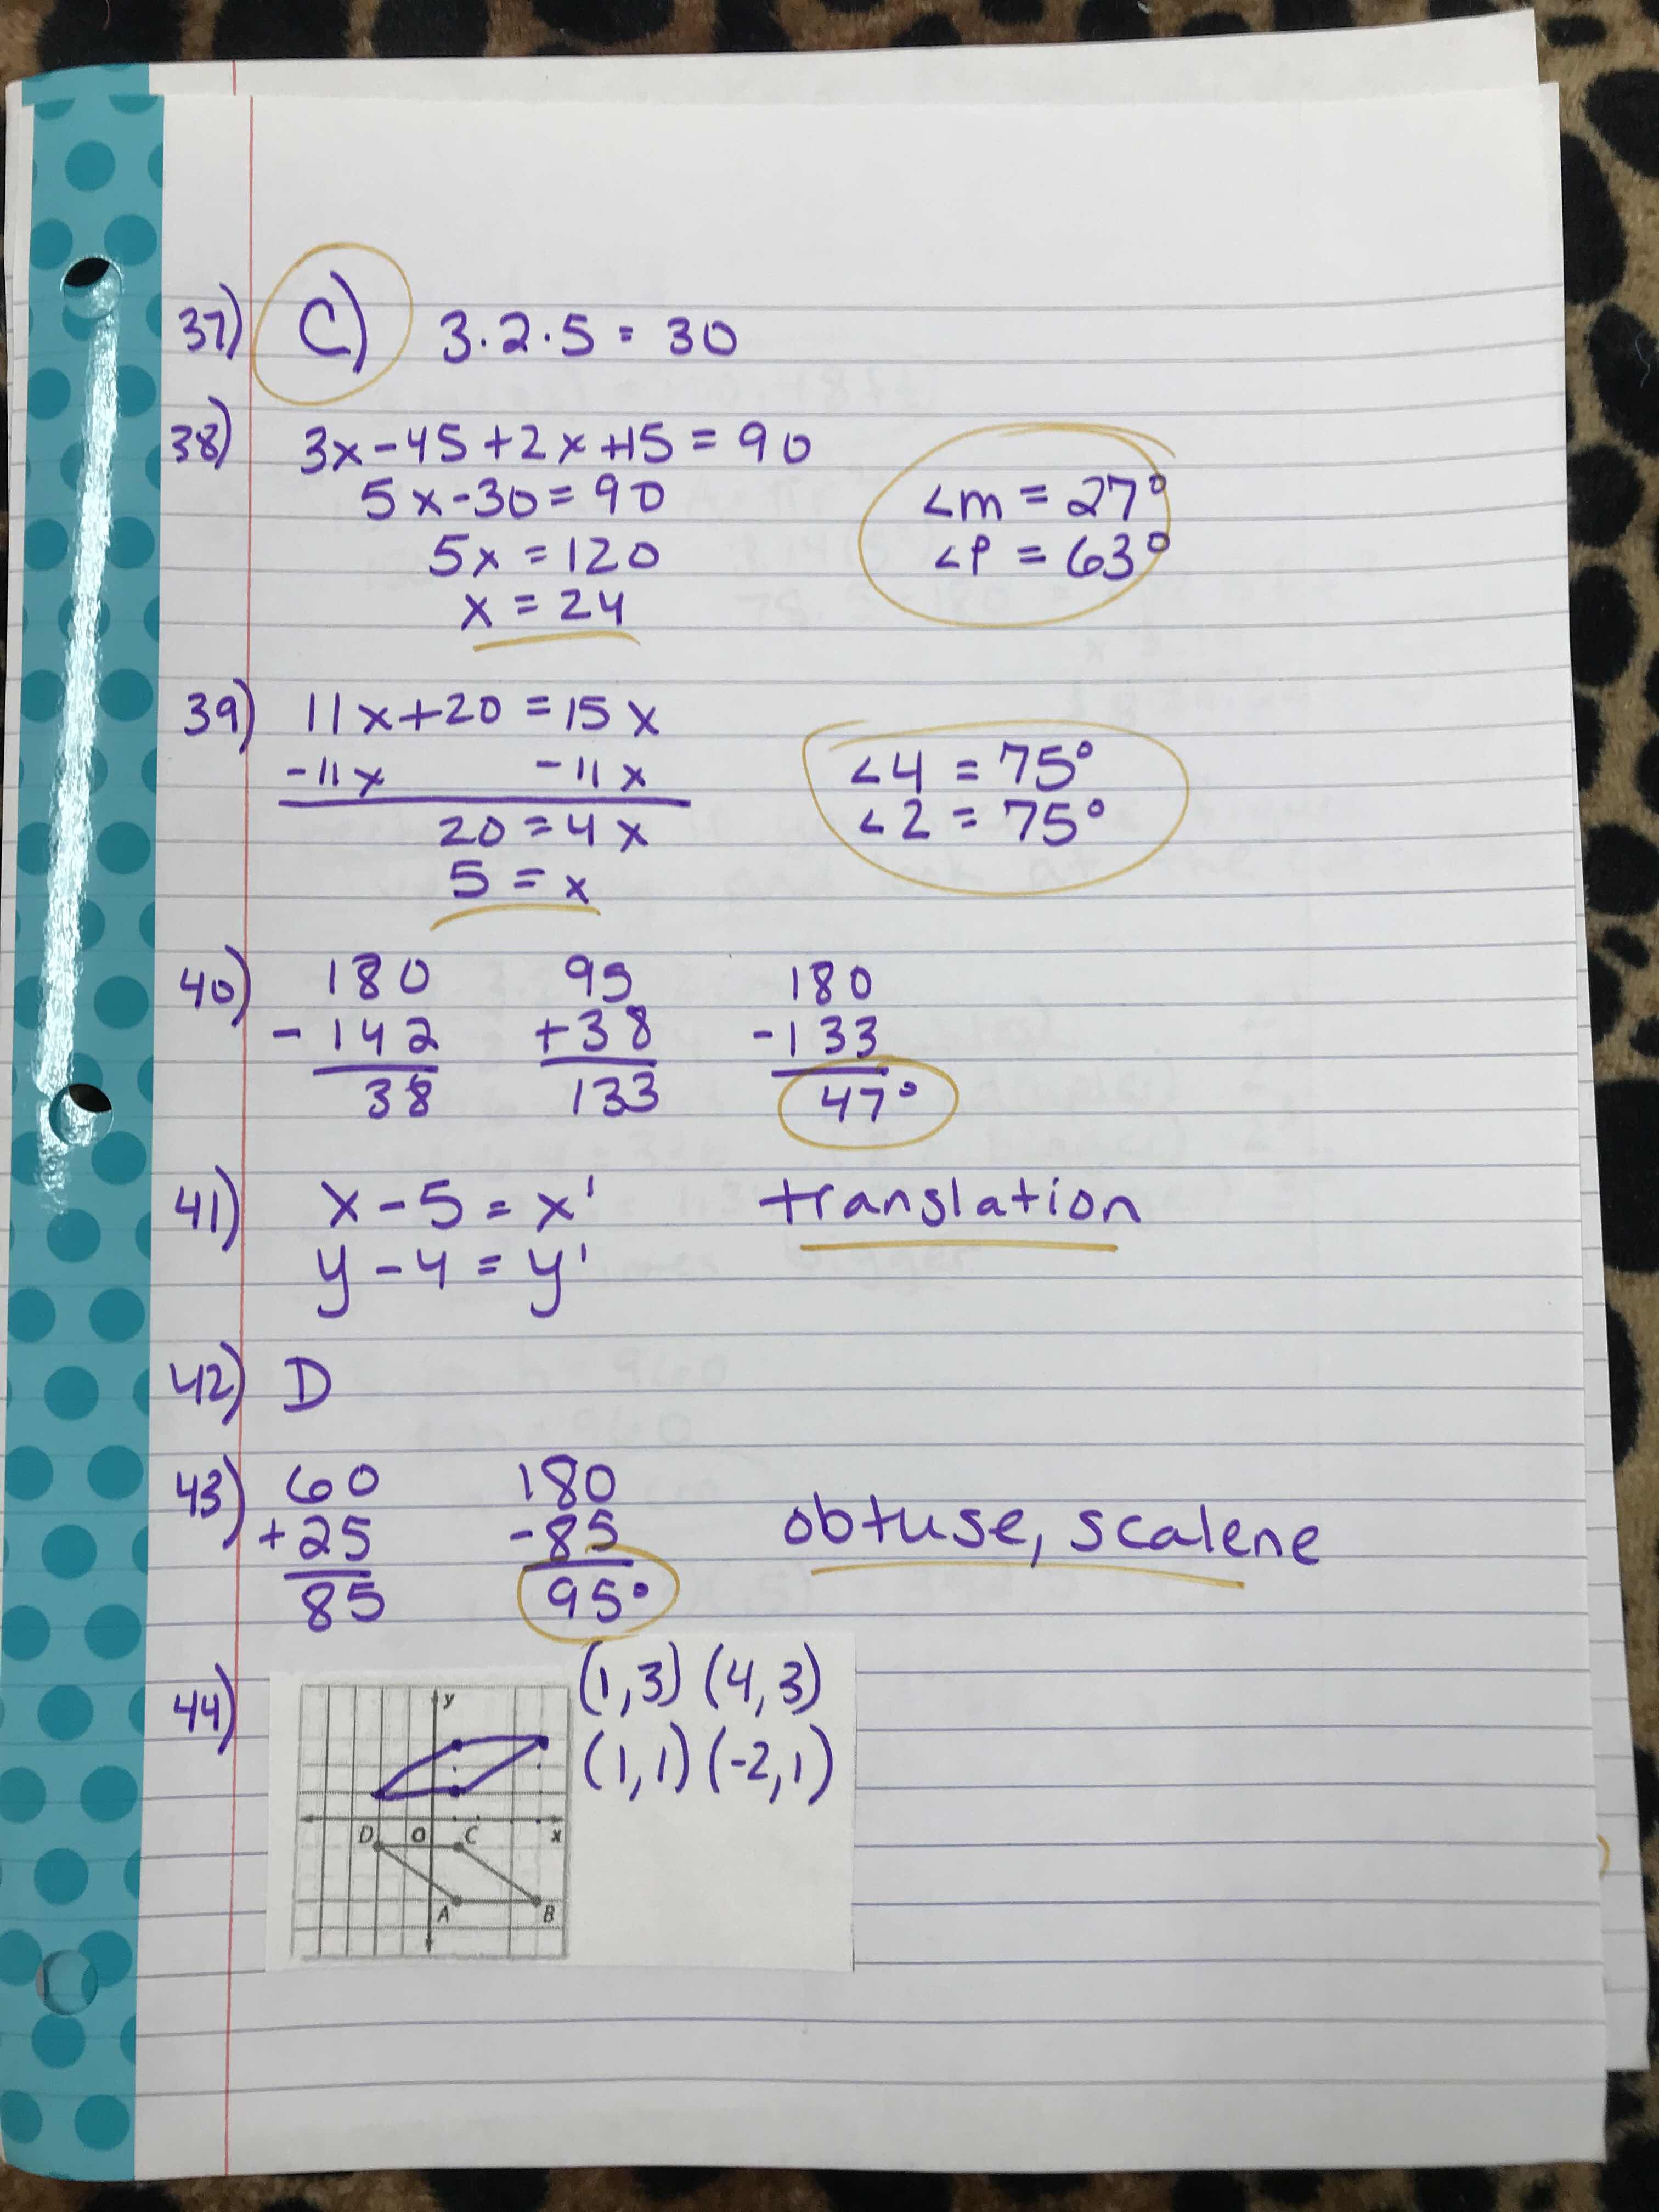 37) C) 3·2·5 = 30
38) 3x-45+2x+15 = 90
5x-30 = 90
5x = 120
x = 24
<m = 27°
<P = 63°
39) 11x+20 = 15x
-11x -11x
20 = 4x
5 = x
<4 = 75°
<2 = 75°
40) 180 95 180
-142 +38 -133
38 133 47°
41) x-5 = x' translation
y-4 = y'
42) D
43) 60 180
+25 -85 obtuse, scalene
85 95°
44) (1,3) (4,3)
(1,1) (-2,1)
y
D O C x
A B